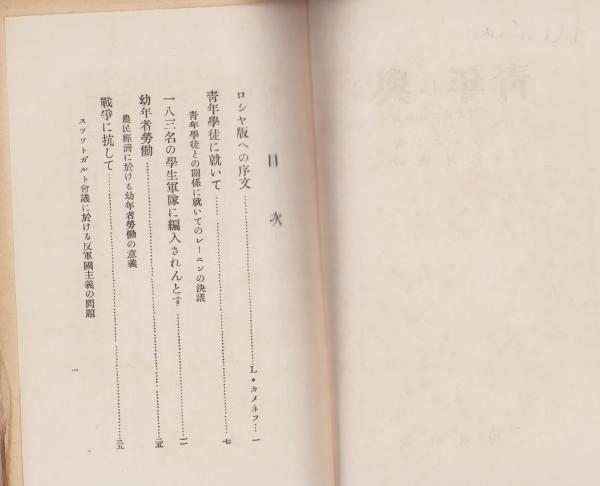 目次
ロシヤ版への序文………L・カメネフ…一
靑年學徒に就いて………七
靑年學徒との關係に就いてのレーニンの決議
一八三名の學生軍隊に編入されんとす………一一
幼年者勞働………二五
農民經濟に於ける幼年者勞働の意義
戰爭に抗して………三五
スツツトガルト會議に於ける反軍國主義の問題
一